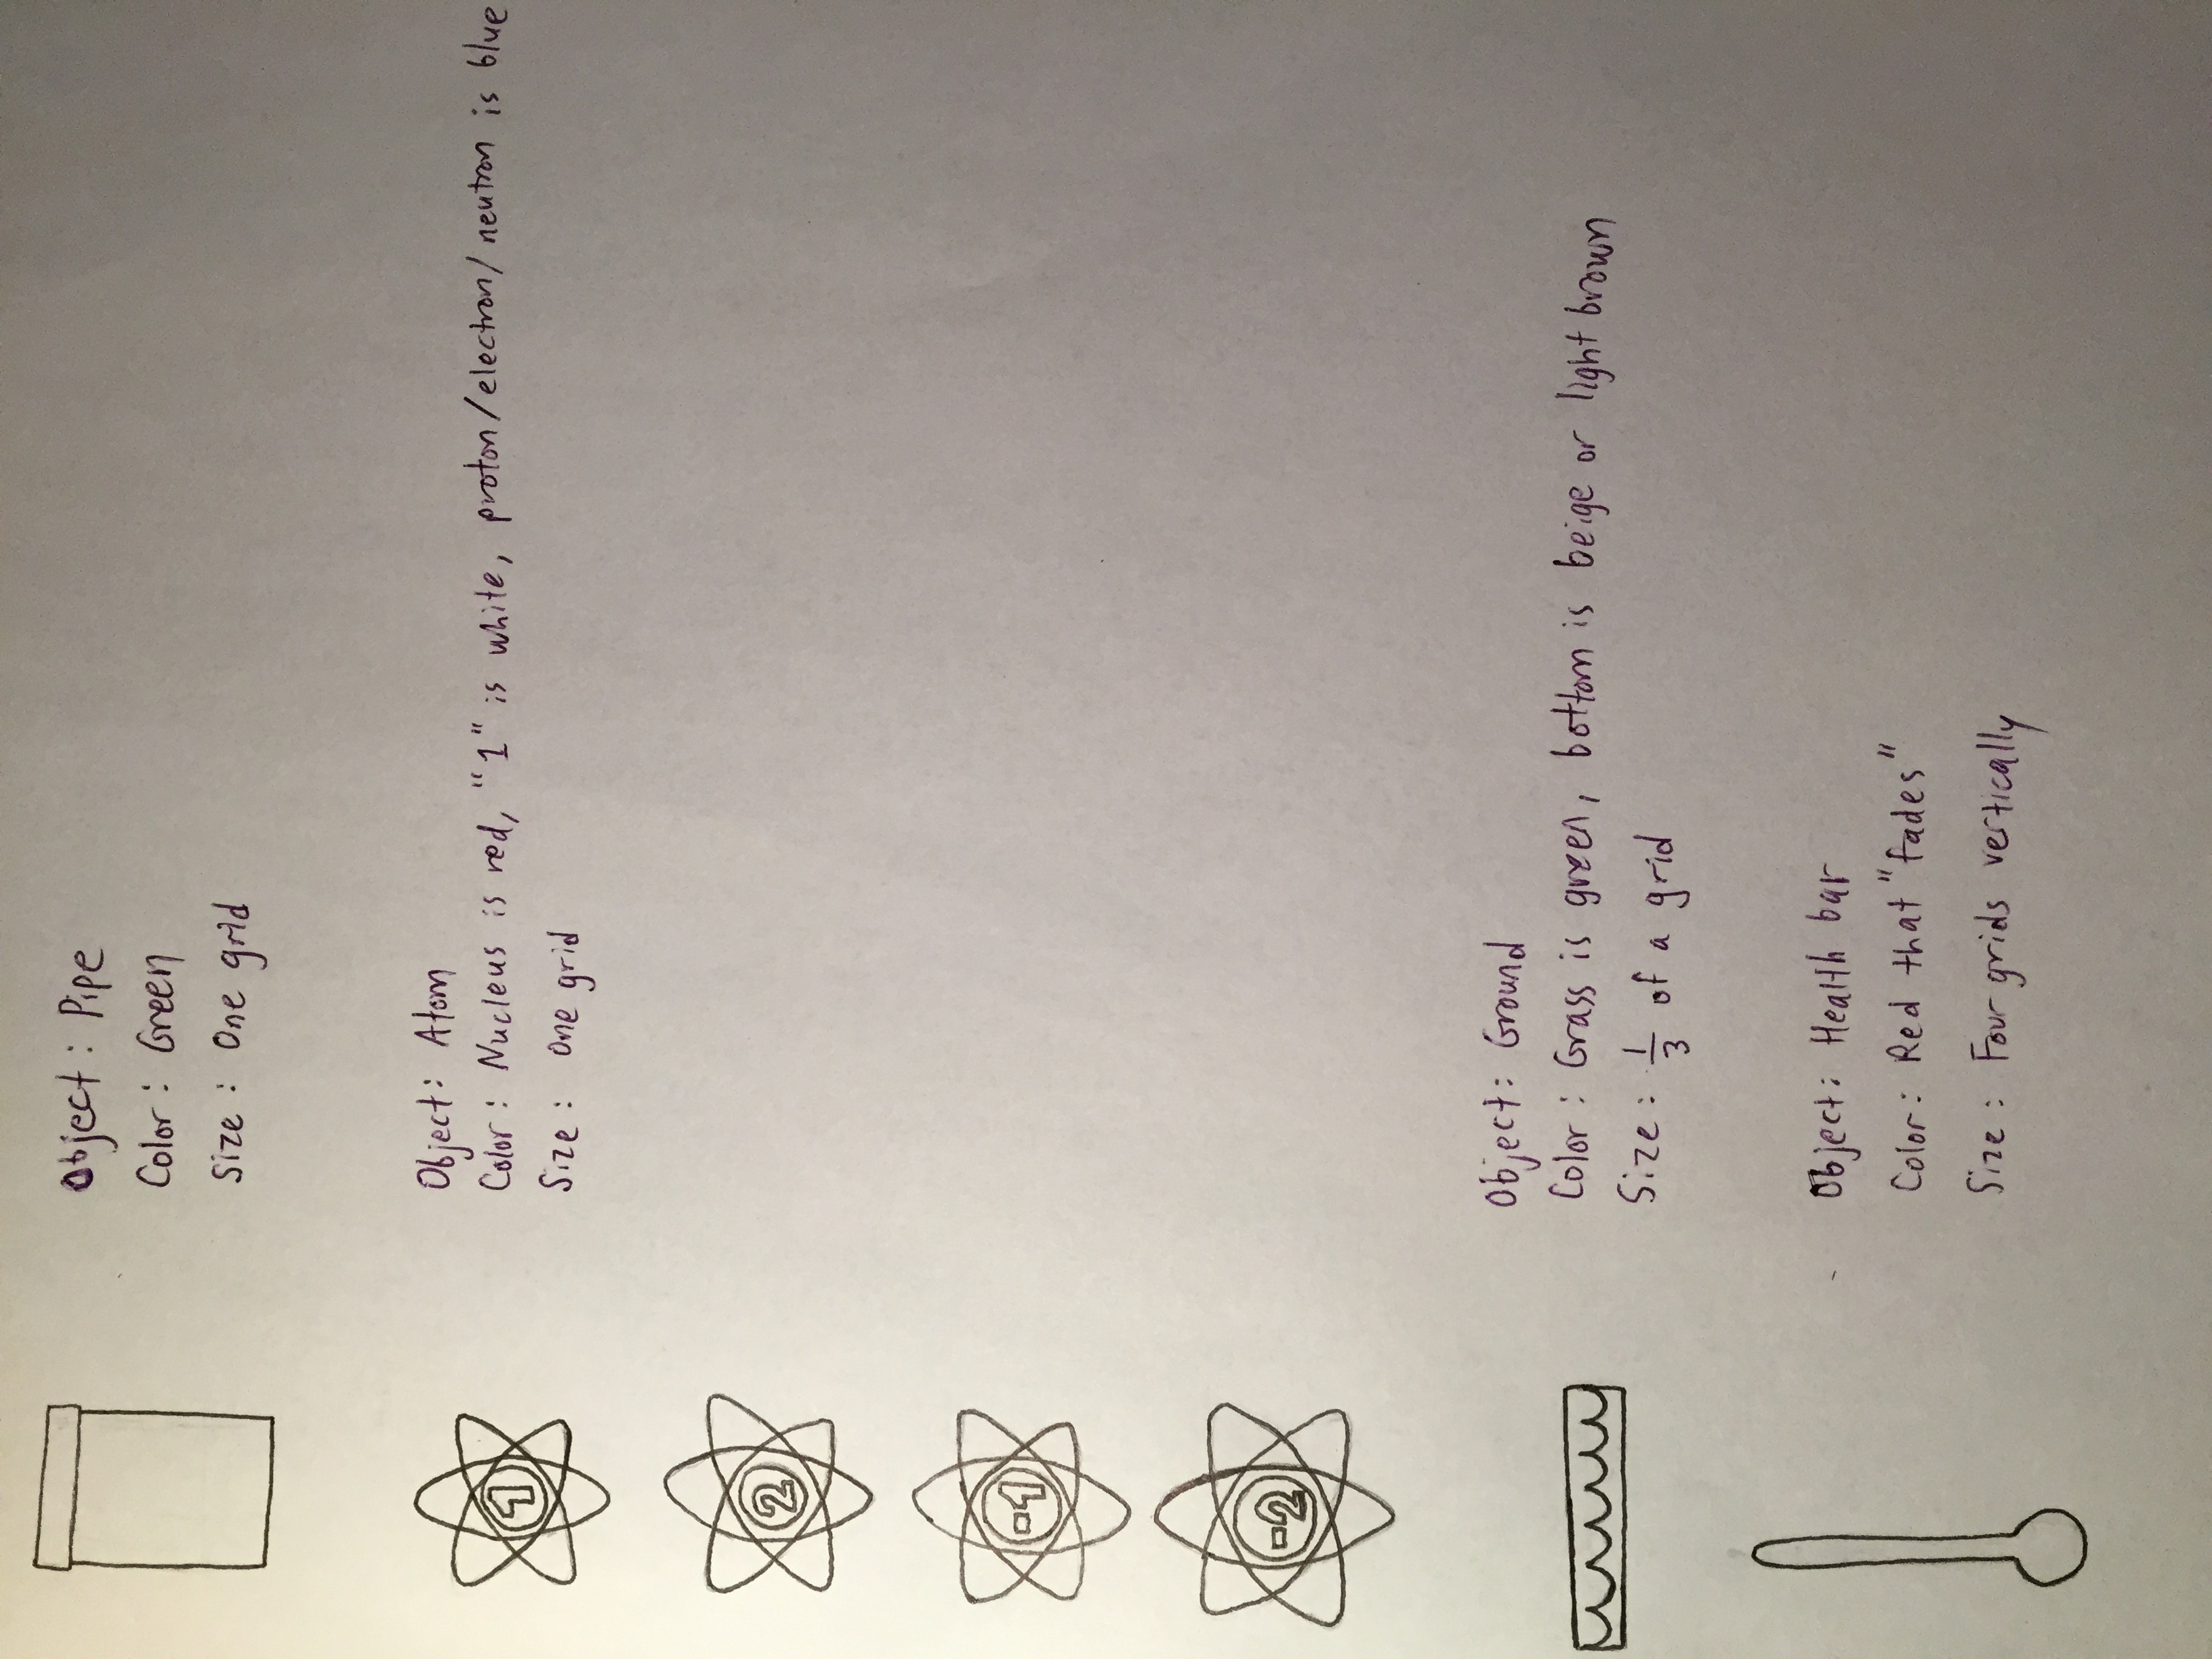 Object: Pipe
Color: Green
Size: One grid
1
Object: Atom
Color: Nucleus is red, "1" is white, proton/electron/neutron is blue
Size: One grid
2
-1
-2
Object: Ground
Color: Grass is green, bottom is beige or light brown
Size: 1/3 of a grid
Object: Health bar
Color: Red that "fades"
Size: Four grids vertically